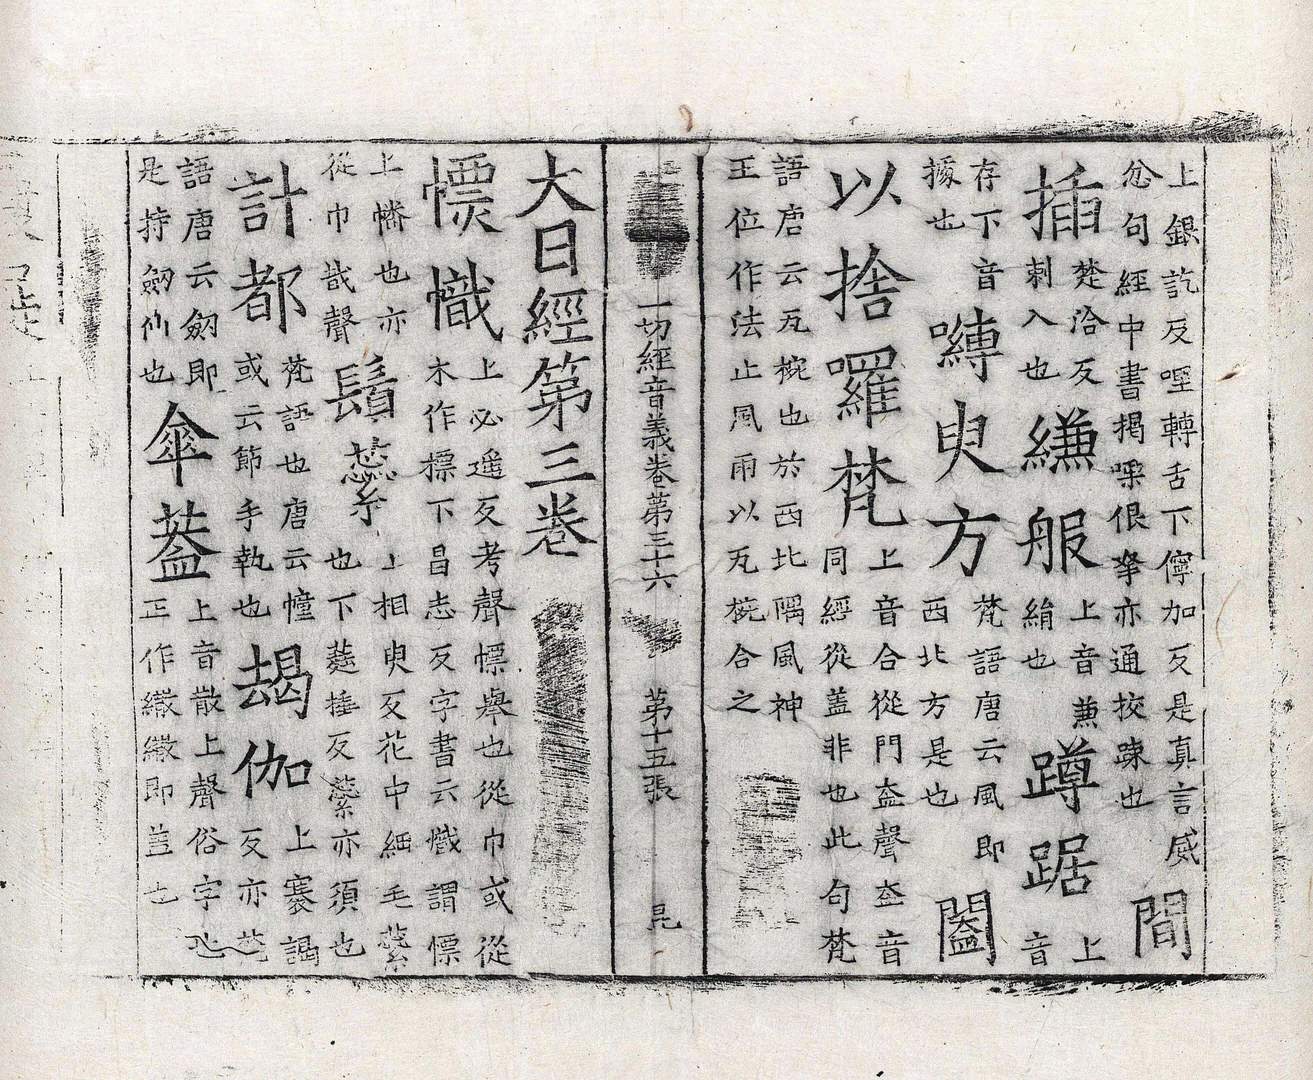 上銀訖反啞轉舌下儜加反是真言威
忿句經中書揭㗚佷拏亦通挍踈也
閻
插
楚洽反
刺入也
縑服
上音兼
絹也
蹲踞
上
音
存下音
據也
嚩臾方
梵語唐云風即
西北方是也
闔
以捨囉梵
上音合從門盇聲盇音
同經從蓋非也此句梵
語唐云瓦椀也於西北隅風神
王位作法止風雨以瓦椀合之
一切經音義卷第三十六 第十五張 昆
大日經第三卷
幖幟
上必遥反考聲幖舉也從巾或從
木作標下昌志反字書云幟謂幖
上幡也亦
從巾㦲聲
鬚蘂
上相臾反花中細毛蘂
也下蕤捶反蘂亦須也
計都
梵語也唐云幢
或云節手執也
朅伽
上蹇謁
反亦梵
語唐云劒即
是持劒仙也
傘蓋
上音散上聲俗字也
正作繖繖即蓋也